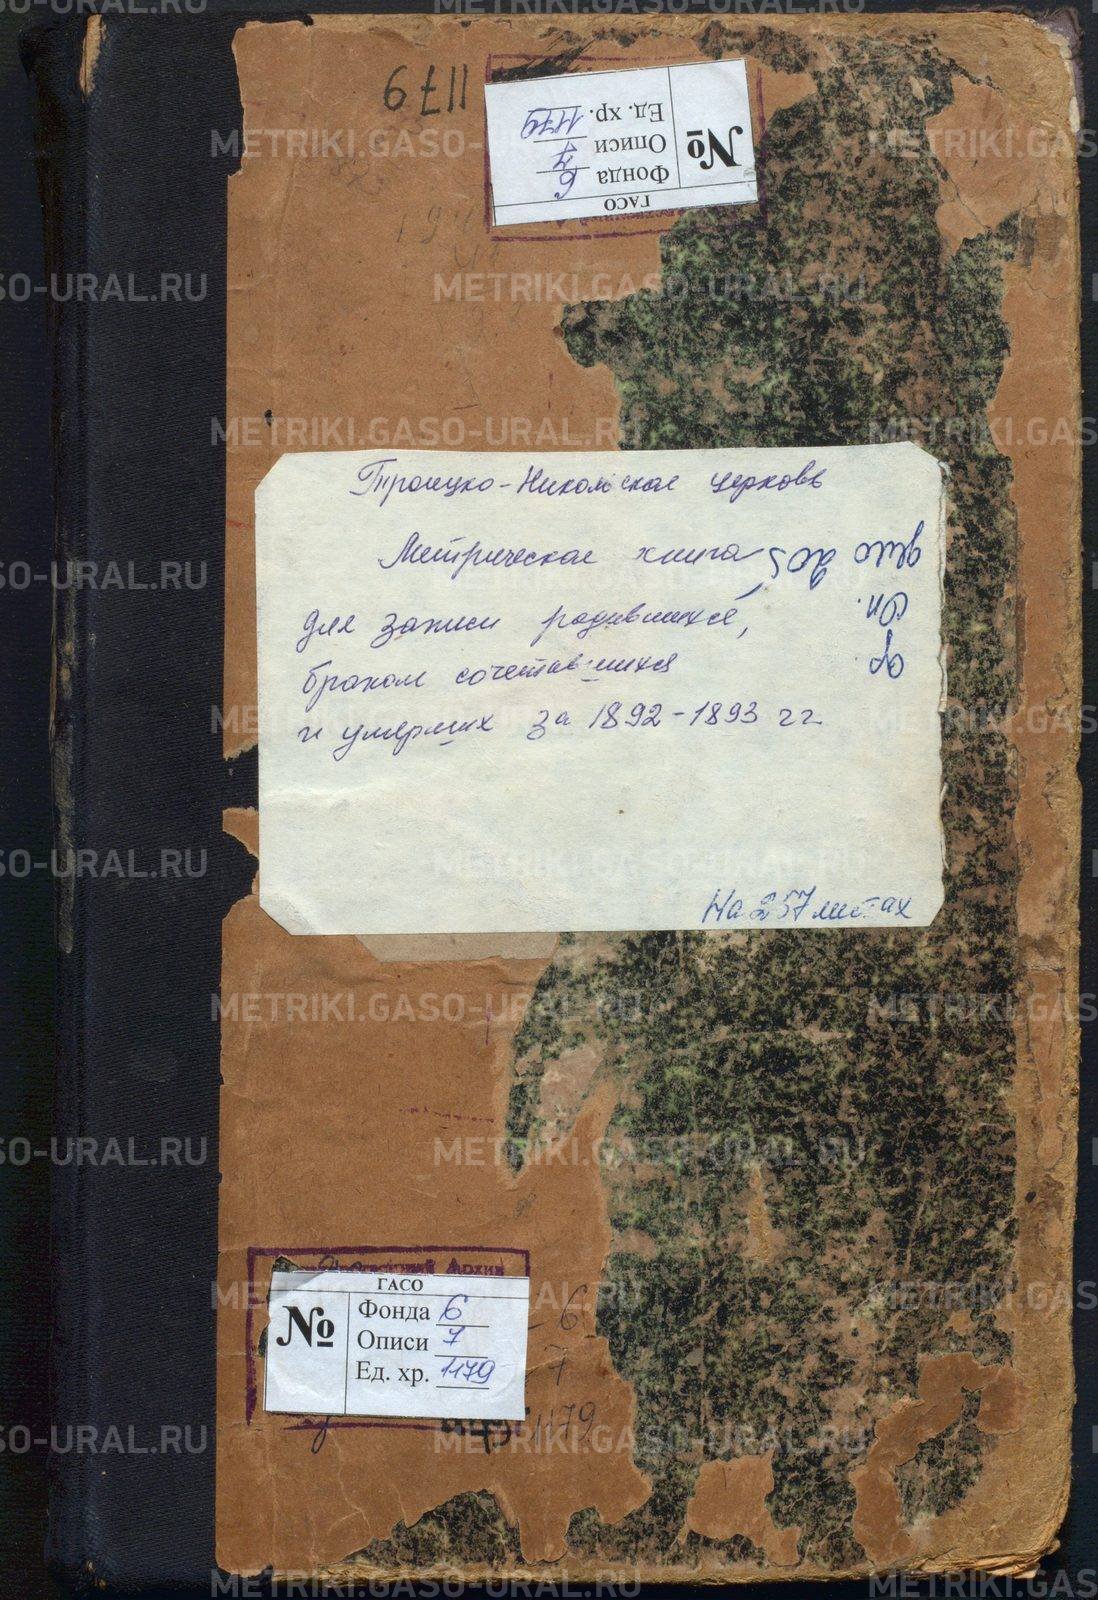 1179
ГАСО
№
Фонда 6
Описи 7
Ед. хр. 1179
Троицко-Никольская церковь
Метрическая книга
для записи родившихся,
браком сочетавшихся
и умерших за 1892-1893 гг
оп.
На 257 листах
Архив
ГАСО
№
Фонда 6
Описи 7
Ед. хр. 1179
6
7
1179
METRIKI.GASO-URAL.RU